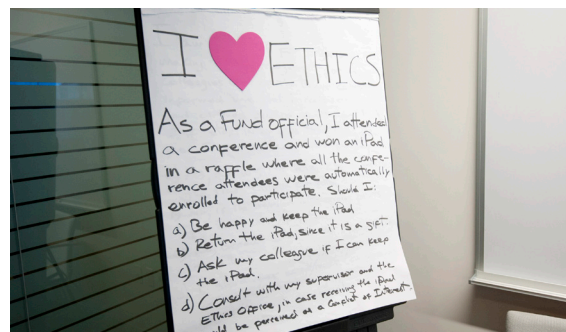 I ETHICS
As a Fund official, I attended
a conference and won an iPad
in a raffle where all the confe-
rence attendees were automatically
enrolled to participate. Should I:
a) Be happy and keep the iPad
b) Return the iPad, since it is a gift.
c) Ask my colleague if I can keep
the iPad.
d) Consult with my supervisor and the
Ethics Office, in case receiving the iPad
be perceived as a Conflict of Interest.